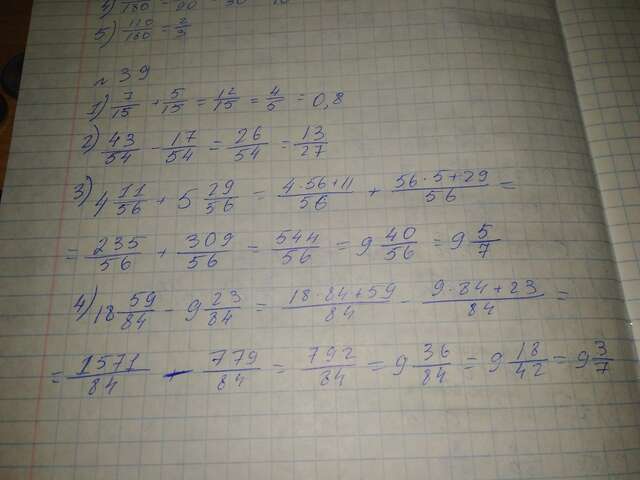 5) 110/160 = 2/3
№ 39
1) 7/15 + 5/15 = 12/15 = 4/5 = 0,8
2) 43/54 - 17/54 = 26/54 = 13/27
3) 4 11/56 + 5 29/56 = 4·56+11/56 + 56·5+29/56 =
= 235/56 + 309/56 = 544/56 = 9 40/56 = 9 5/7
4) 18 59/84 - 9 23/84 = 18·84+59/84 - 9·84+23/84 =
= 1571/84 - 779/84 = 792/84 = 9 36/84 = 9 18/42 = 9 3/7